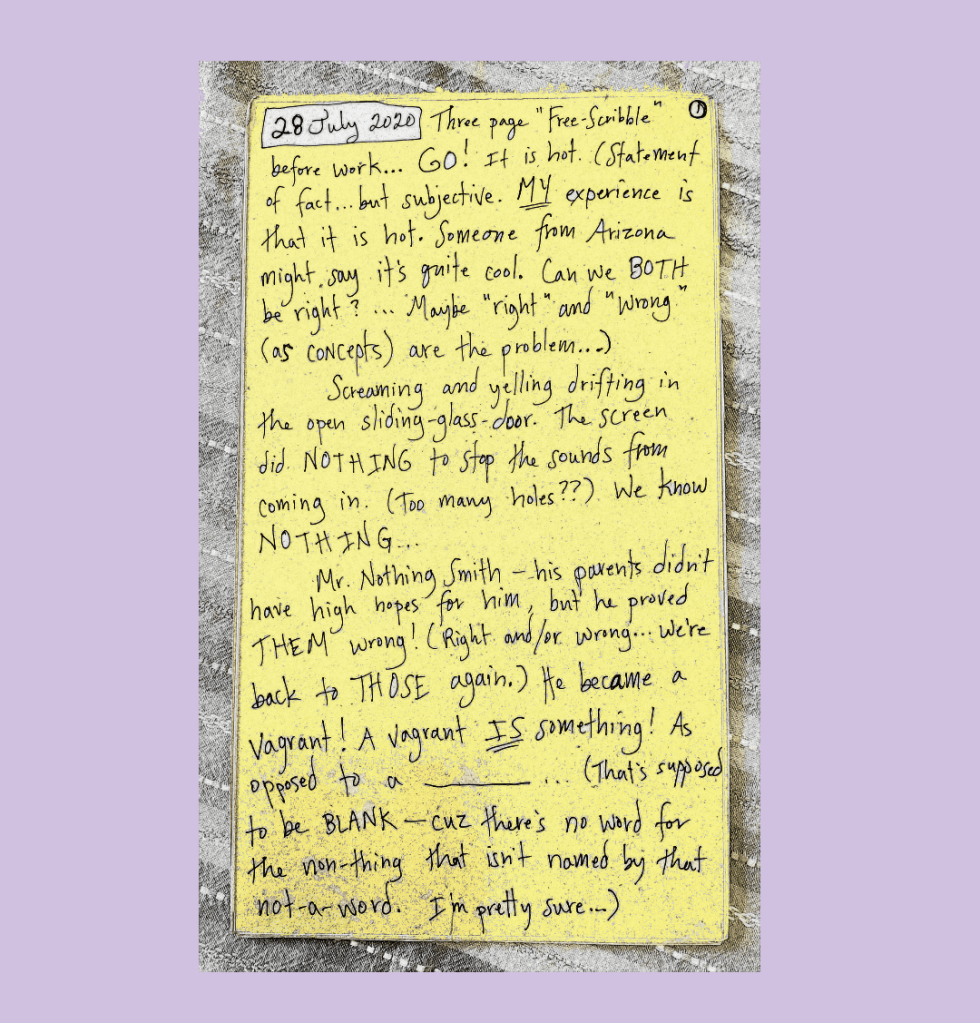 28 July 2020 Three page "Free-Scribble" ①
before work... GO! It is hot. (Statement
of fact... but subjective. MY experience is
that it is hot. Someone from Arizona
might say it's quite cool. Can we BOTH
be right? ... Maybe "right" and "wrong"
(as concepts) are the problem...)
Screaming and yelling drifting in
the open sliding-glass-door. The screen
did NOTHING to stop the sounds from
coming in. (Too many holes??) We know
NOTHING...
Mr. Nothing Smith – his parents didn't
have high hopes for him, but he proved
THEM wrong! (Right and/or wrong... we're
back to THOSE again.) He became a
vagrant! A vagrant IS something! As
opposed to a ________ ... (That's supposed
to be BLANK – cuz there's no word for
the non-thing that isn't named by that
not-a-word. I'm pretty sure...)